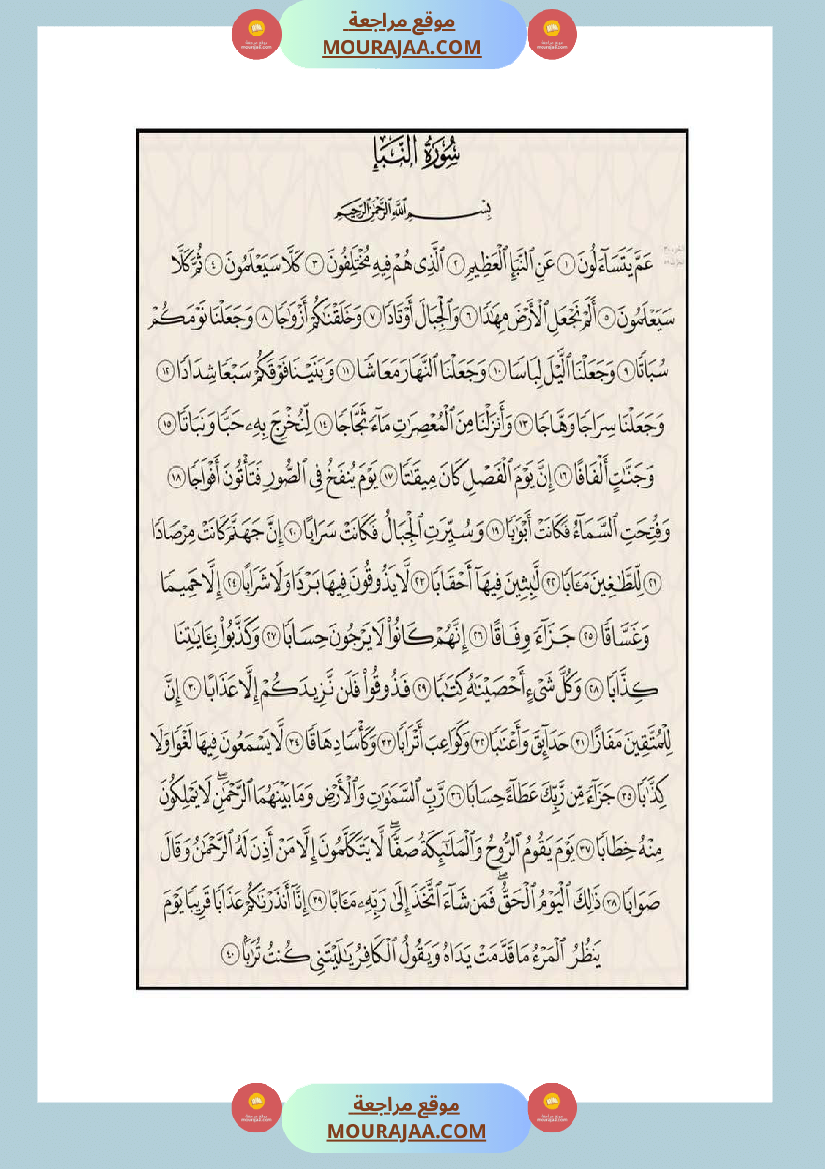 موقع مراجعة
MOURAJAA.COM
سُورَةُ النَّبَإِ
بِسْمِ اللَّهِ الرَّحْمَٰنِ الرَّحِيمِ
عَمَّ يَتَسَآءَلُونَ ١ عَنِ ٱلنَّبَإِ ٱلْعَظِيمِ ٢ ٱلَّذِى هُمْ فِيهِ مُخْتَلِفُونَ ٣ كَلَّا سَيَعْلَمُونَ ٤ ثُمَّ كَلَّا
سَيَعْلَمُونَ ٥ أَلَمْ نَجْعَلِ ٱلْأَرْضَ مِهَٰدًا ٦ وَٱلْجِبَالَ أَوْتَادًا ٧ وَخَلَقْنَٰكُمْ أَزْوَٰجًا ٨ وَجَعَلْنَا نَوْمَكُمْ
سُبَاتًا ٩ وَجَعَلْنَا ٱلَّيْلَ لِبَاسًا ١٠ وَجَعَلْنَا ٱلنَّهَارَ مَعَاشًا ١١ وَبَنَيْنَا فَوْقَكُمْ سَبْعًا شِدَادًا ١٢
وَجَعَلْنَا سِرَاجًا وَهَّاجًا ١٣ وَأَنزَلْنَا مِنَ ٱلْمُعْصِرَٰتِ مَآءً ثَجَّاجًا ١٤ لِّنُخْرِجَ بِهِۦ حَبًّا وَنَبَاتًا ١٥
وَجَنَّٰتٍ أَلْفَافًا ١٦ إِنَّ يَوْمَ ٱلْفَصْلِ كَانَ مِيقَٰتًا ١٧ يَوْمَ يُنفَخُ فِى ٱلصُّورِ فَتَأْتُونَ أَفْوَاجًا ١٨
وَفُتِحَتِ ٱلسَّمَآءُ فَكَانَتْ أَبْوَٰبًا ١٩ وَسُيِّرَتِ ٱلْجِبَالُ فَكَانَتْ سَرَابًا ٢٠ إِنَّ جَهَنَّمَ كَانَتْ مِرْصَادًا
٢١ لِّلطَّٰغِينَ مَـَٔابًا ٢٢ لَّٰبِثِينَ فِيهَآ أَحْقَابًا ٢٣ لَّا يَذُوقُونَ فِيهَا بَرْدًا وَلَا شَرَابًا ٢٤ إِلَّا حَمِيمًا
وَغَسَّاقًا ٢٥ جَزَآءً وِفَاقًا ٢٦ إِنَّهُمْ كَانُوا۟ لَا يَرْجُونَ حِسَابًا ٢٧ وَكَذَّبُوا۟ بِـَٔايَٰتِنَا
كِذَّابًا ٢٨ وَكُلَّ شَىْءٍ أَحْصَيْنَٰهُ كِتَٰبًا ٢٩ فَذُوقُوا۟ فَلَن نَّزِيدَكُمْ إِلَّا عَذَابًا ٣٠ إِنَّ
لِلْمُتَّقِينَ مَفَازًا ٣١ حَدَآئِقَ وَأَعْنَٰبًا ٣٢ وَكَوَاعِبَ أَتْرَابًا ٣٣ وَكَأْسًا دِهَاقًا ٣٤ لَّا يَسْمَعُونَ فِيهَا لَغْوًا وَلَا
كِذَّٰبًا ٣٥ جَزَآءً مِّن رَّبِّكَ عَطَآءً حِسَابًا ٣٦ رَّبِّ ٱلسَّمَٰوَٰتِ وَٱلْأَرْضِ وَمَا بَيْنَهُمَا ٱلرَّحْمَٰنِ ۖ لَا يَمْلِكُونَ
مِنْهُ خِطَابًا ٣٧ يَوْمَ يَقُومُ ٱلرُّوحُ وَٱلْمَلَٰٓئِكَةُ صَفًّا ۖ لَّا يَتَكَلَّمُونَ إِلَّا مَنْ أَذِنَ لَهُ ٱلرَّحْمَٰنُ وَقَالَ
صَوَابًا ٣٨ ذَٰلِكَ ٱلْيَوْمُ ٱلْحَقُّ ۖ فَمَن شَآءَ ٱتَّخَذَ إِلَىٰ رَبِّهِۦ مَـَٔابًا ٣٩ إِنَّآ أَنذَرْنَٰكُمْ عَذَابًا قَرِيبًا يَوْمَ
يَنظُرُ ٱلْمَرْءُ مَا قَدَّمَتْ يَدَاهُ وَيَقُولُ ٱلْكَافِرُ يَٰلَيْتَنِى كُنتُ تُرَٰبًا ٤٠
موقع مراجعة
MOURAJAA.COM